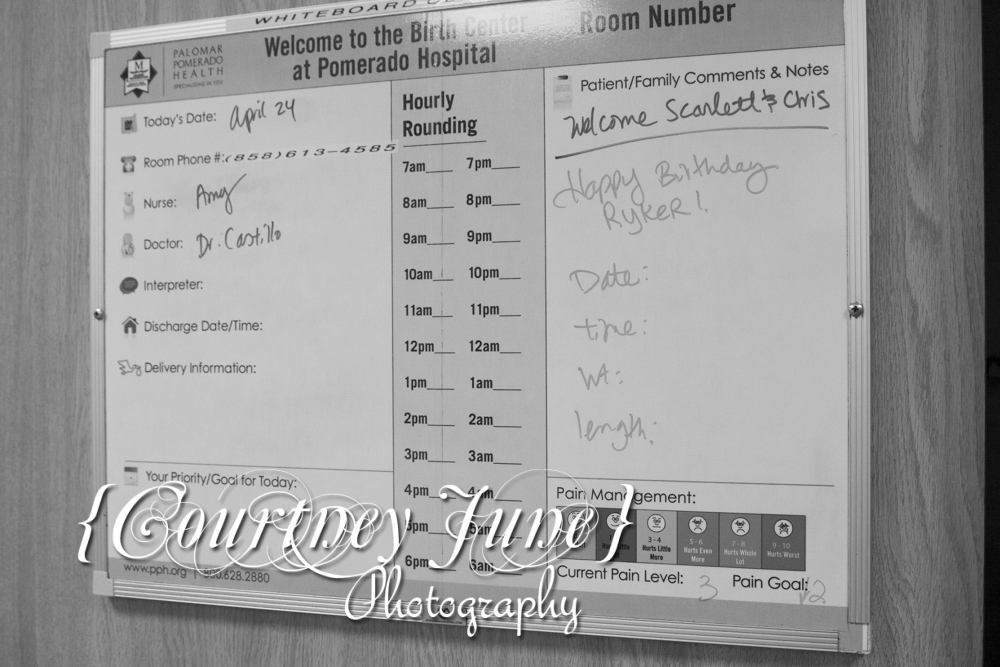 Welcome to the Birth Center
at Pomerado Hospital
Room Number
PALOMAR
POMERADO
HEALTH
SPECIALIZING IN YOU
Today's Date: April 24
Room Phone #: (858)613-4585
Nurse: Amy
Doctor: Dr. Castillo
Interpreter:
Discharge Date/Time:
Delivery Information:
Your Priority/Goal for Today:
www.pph.org | 800.628.2880
Hourly
Rounding
7am___ 7pm___
8am___ 8pm___
9am___ 9pm___
10am___ 10pm___
11am___ 11pm___
12pm___ 12am___
1pm___ 1am___
2pm___ 2am___
3pm___ 3am___
4pm___ 4am___
5pm___ 5am___
6pm___ 6am___
Patient/Family Comments & Notes
Welcome Scarlett & Chris
Happy Birthday
Ryker!
Date:
time:
Wt:
length:
Pain Management:
3 - 4
Hurts Little
More
5 - 6
Hurts Even
More
7 - 8
Hurts Whole
Lot
9 - 10
Hurts Worst
Current Pain Level: 3 Pain Goal: 2
{Courtney June}
Photography